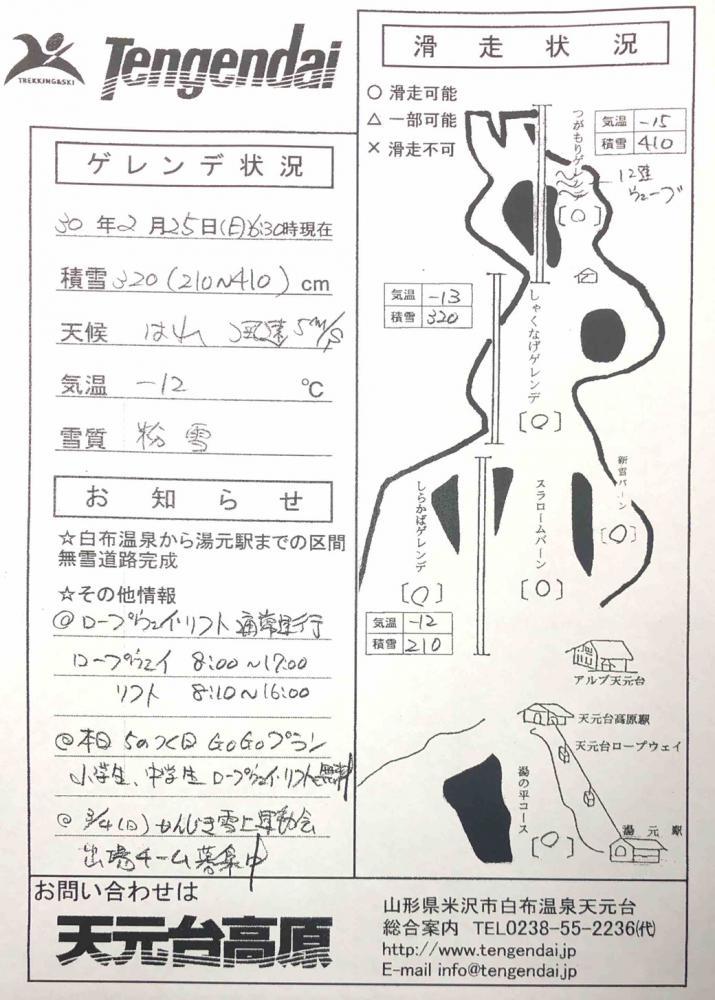 TREKKING&SKI
Tengendai
ゲレンデ状況
30年2月25日(日)6:30時現在
積雪 320(210~410)cm
天候 はれ 風速5m/s
気温 -12 ℃
雪質 粉雪
お知らせ
☆白布温泉から湯元駅までの区間
無雪道路完成
☆その他情報
@ロープウェイ・リフト通常運行
ロープウェイ 8:00~17:00
リフト 8:10~16:00
@本日5のつく日GoGoプラン
小学生、中学生ロープウェイ・リフト無料
@3/4(日)かんじき雪上運動会
出場チーム募集中
滑走状況
○ 滑走可能
△ 一部可能
× 滑走不可
つがもりゲレンデ
[○]
気温 -15
積雪 410
12連
ウェーブ
気温 -13
積雪 320
しゃくなげゲレンデ
[○]
しらかばゲレンデ
[○]
スラロームバーン
[○]
新雪バーン
[○]
気温 -12
積雪 210
アルブ天元台
天元台高原駅
天元台ロープウェイ
湯の平コース
[○]
湯元駅
お問い合わせは
天元台高原
山形県米沢市白布温泉天元台
総合案内 TEL0238-55-2236(代)
http://www.tengendai.jp
E-mail info@tengendai.jp